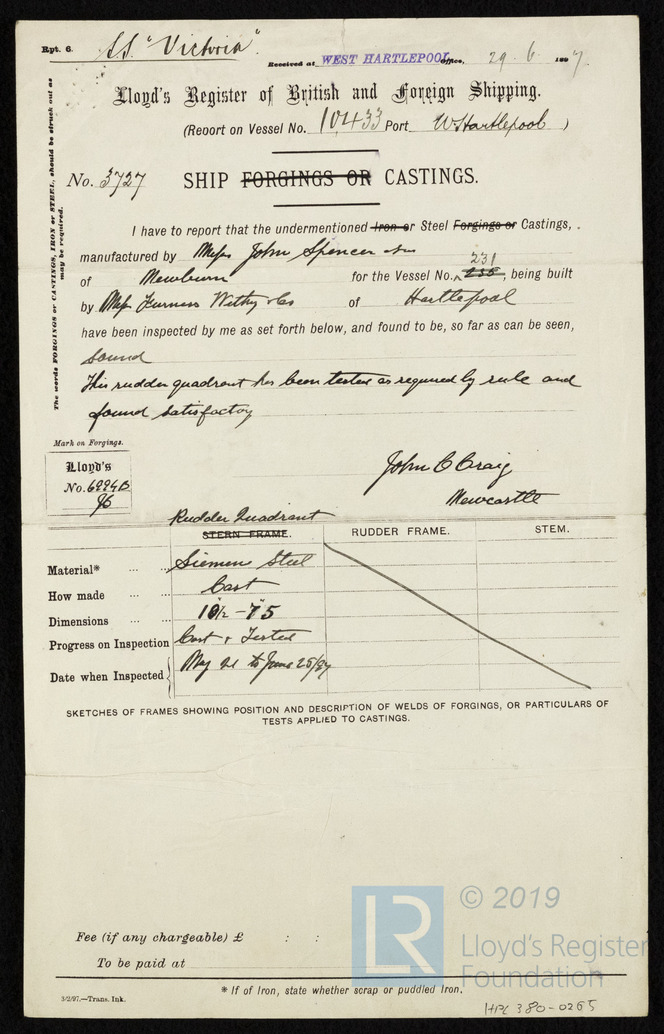 Rpt. 6. S.S. "Victoria".
Received at WEST HARTLEPOOL Office, 29. 6. 1897.
Lloyd's Register of British and Foreign Shipping.
(Report on Vessel No. 10433 Port W Hartlepool)
No. 3727 SHIP FORGINGS OR CASTINGS.
The words FORGINGS or CASTINGS, IRON or STEEL, should be struck out as may be required.
I have to report that the undermentioned Iron or Steel Forgings or Castings,
manufactured by Messrs John Spencer & Son
231
of Newburn for the Vessel No. 235, being built
by Messrs Furness Withy & Co of Hartlepool
have been inspected by me as set forth below, and found to be, so far as can be seen,
sound
This rudder quadrant has been tested as required by rule and
found satisfactory
Mark on Forgings.
Lloyd's
No. 6994B
John C Craig
Newcastle
Rudder Quadrant
STERN FRAME. RUDDER FRAME. STEM.
Material* Siemens Steel
How made Cast
Dimensions 10½ - 7.5
Progress on Inspection Cast & Tested
Date when Inspected May 21 to June 25/97
SKETCHES OF FRAMES SHOWING POSITION AND DESCRIPTION OF WELDS OF FORGINGS, OR PARTICULARS OF
TESTS APPLIED TO CASTINGS.
Fee (if any chargeable) £ : :
To be paid at
* If of Iron, state whether scrap or puddled Iron.
3/2/97.—Trans. Ink.
HPL 380-0265
LR © 2019
Lloyd's Register
Foundation